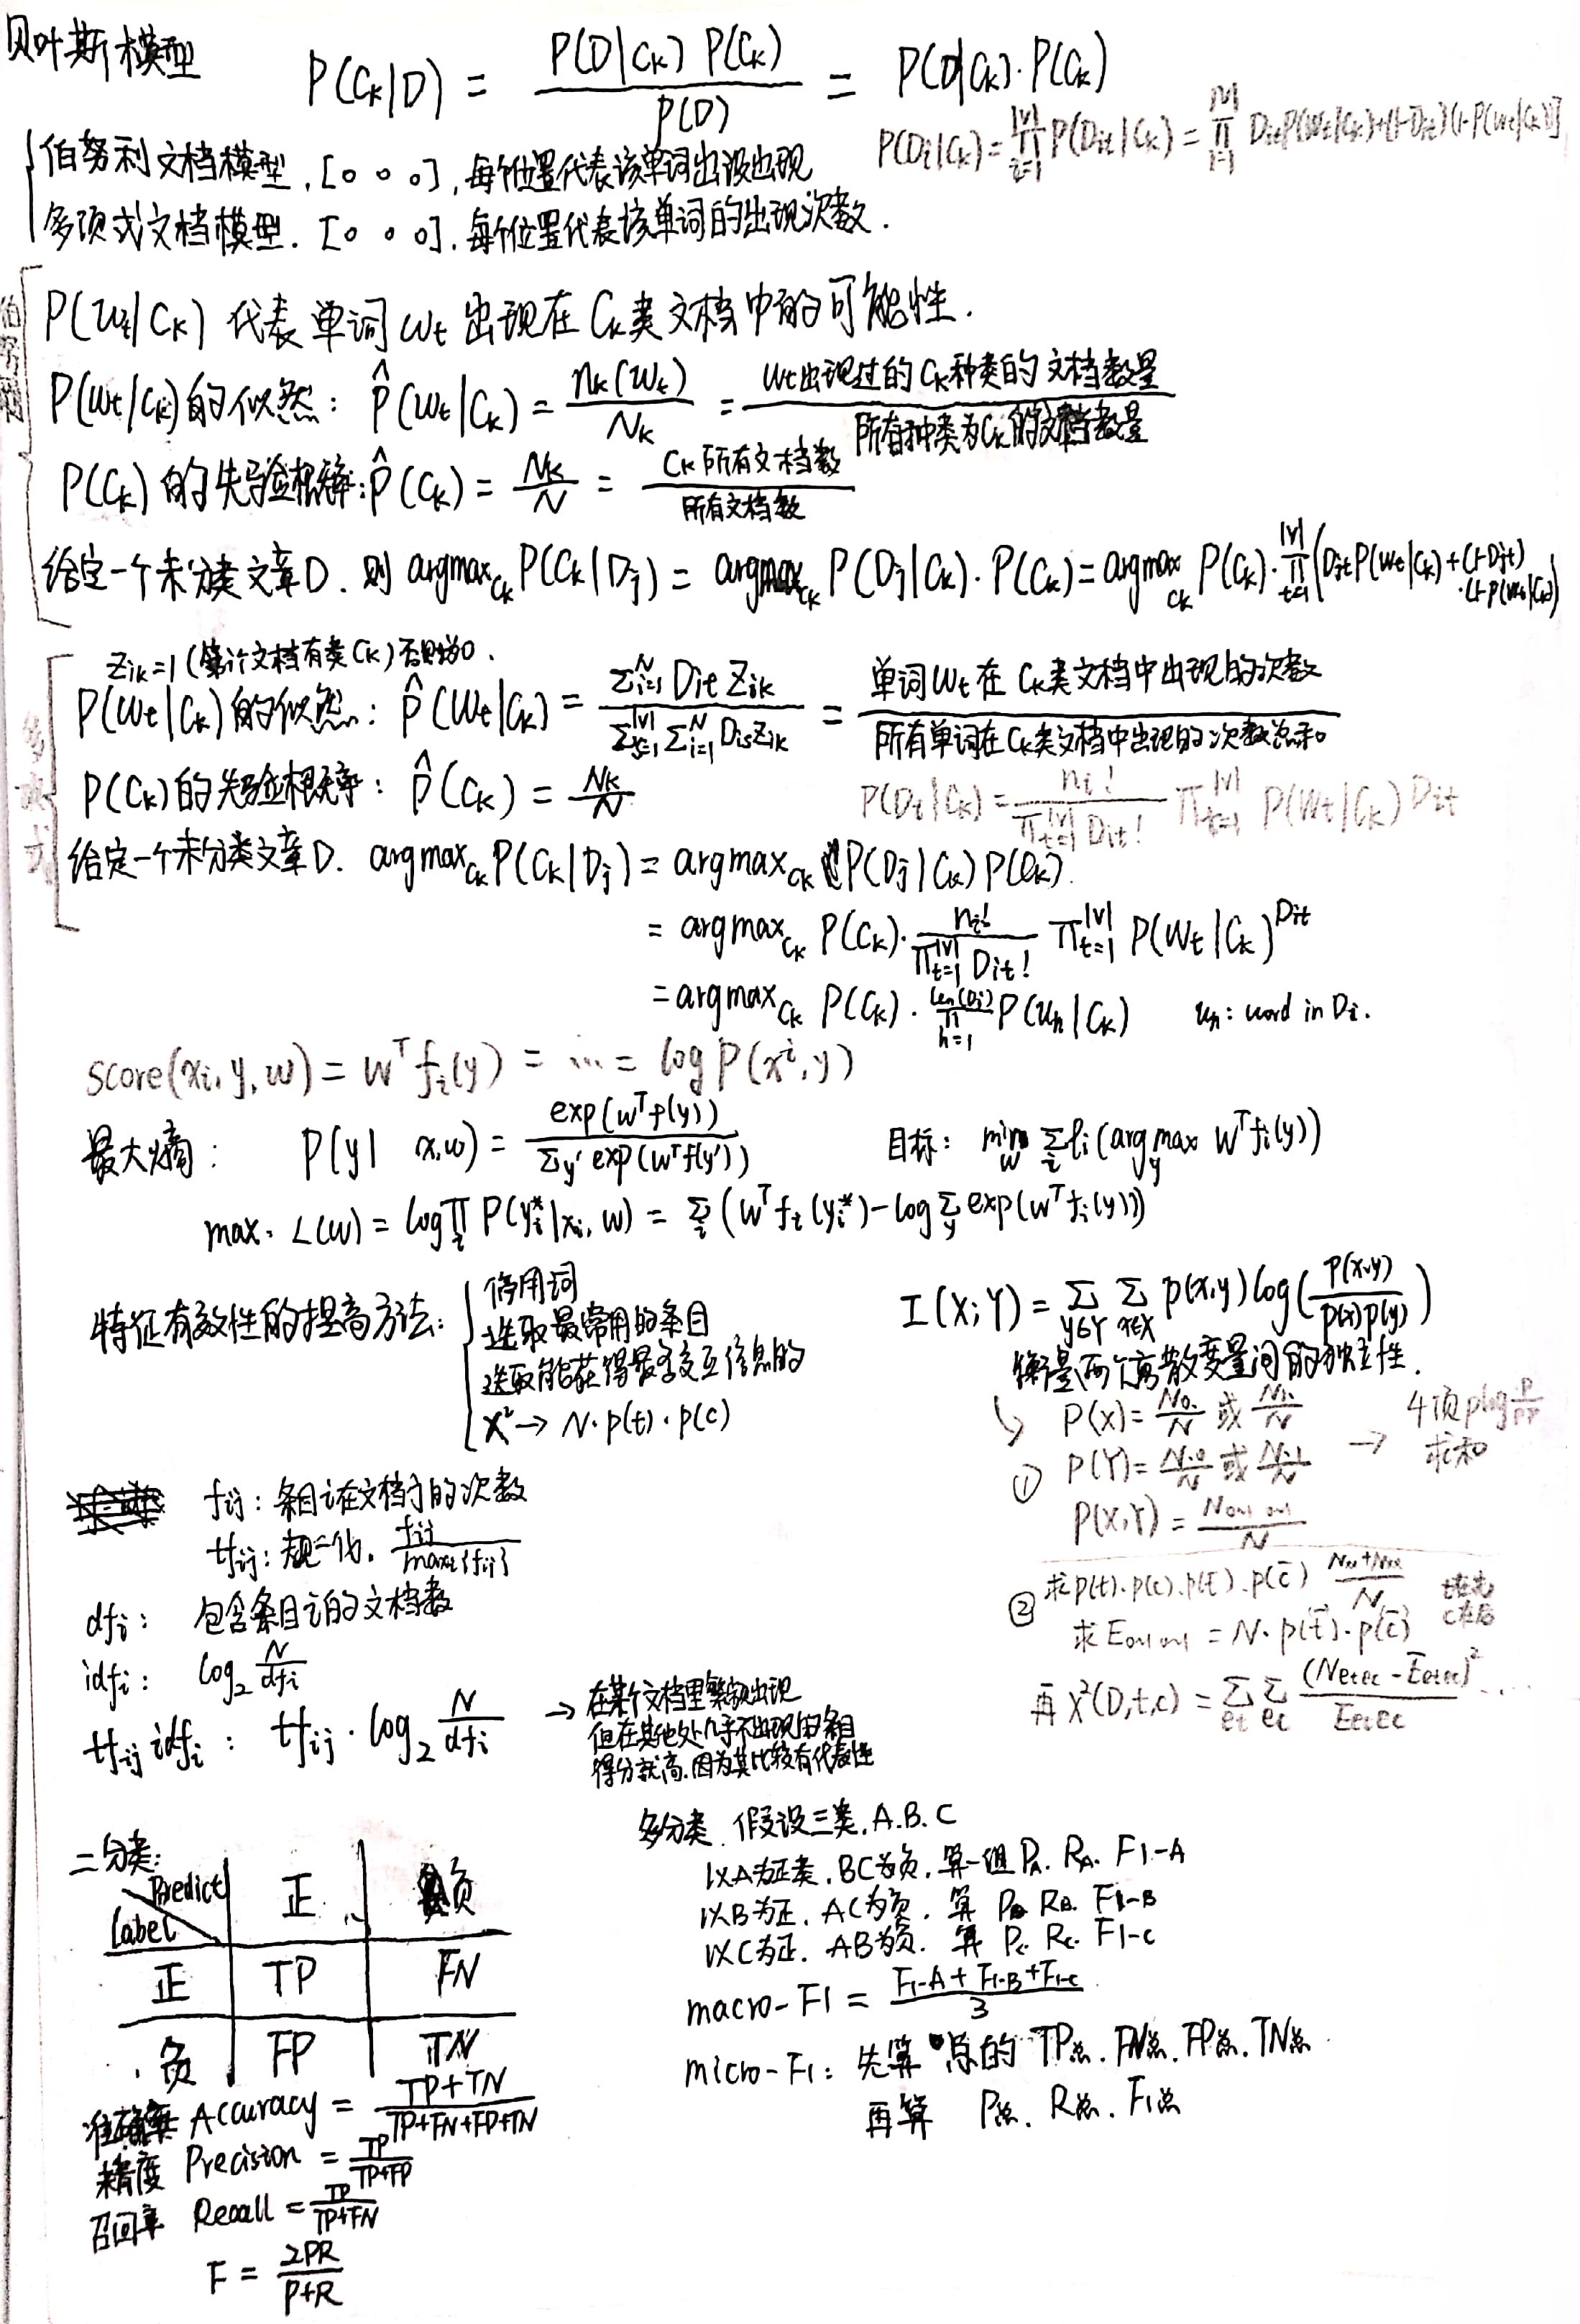 贝叶斯模型
P(Ck|D) = P(D|Ck) P(Ck) / P(D) = P(D|Ck)·P(Ck)
P(Di|Ck) = ∏_{t=1}^{|V|} P(Dit|Ck) = ∏_{t=1}^{|V|} [Dit P(wt|Ck)+(1-Dit)(1-P(wt|Ck))]
伯努利文档模型, [o o o], 每个位置代表该单词出没出现
多项式文档模型. [o o o], 每个位置代表该单词的出现次数.
伯努利
P(wt|Ck) 代表单词wt出现在Ck类文档中的可能性.
P(wt|Ck)的似然: P̂(wt|Ck) = nk(wt)/Nk = wt出现过的Ck种类的文档数量/所有种类为Ck的文档数量
P(Ck)的先验概率: P̂(Ck) = Nk/N = Ck所有文档数/所有文档数
给定一个未分类文章D. 则 argmax_Ck P(Ck|Dj) = argmax_Ck P(Dj|Ck)·P(Ck) = argmax_Ck P(Ck)·∏_{t=1}^{|V|}(Djt P(wt|Ck)+(1-Djt)·(1-P(wt|Ck)))
多项式
Zik=1 (第i个文档有类Ck) 否则为0.
P(wt|Ck)的似然: P̂(wt|Ck) = Σ_{i=1}^{N} Dit Zik / Σ_{s=1}^{|V|} Σ_{i=1}^{N} Dis Zik = 单词wt在Ck类文档中出现的次数/所有单词在Ck类文档中出现的次数总和
P(Ck)的先验概率: P̂(Ck) = Nk/N
P(Di|Ck) = ni! / ∏_{t=1}^{|V|} Dit! ∏_{t=1}^{|V|} P(wt|Ck)^Dit
给定一个未分类文章D. argmax_Ck P(Ck|Dj) = argmax_Ck P(Dj|Ck) P(Ck).
= argmax_Ck P(Ck)· ni! / ∏_{t=1}^{|V|} Dit! ∏_{t=1}^{|V|} P(wt|Ck)^Dit
= argmax_Ck P(Ck)· ∏_{h=1}^{len(Di)} P(uh|Ck) uh: word in Di.
score(xi, y, w) = w^T fi(y) = ... = log P(x^i, y)
最大熵: P(y| x,w) = exp(w^T f(y)) / Σy' exp(w^T f(y')) 目标: min_w Σ_i li(argmax_y w^T fi(y))
max: L(w) = log ∏_i P(yi*|xi, w) = Σ_i (w^T fi(yi*) - log Σ_y exp(w^T fi(y)))
特征有效性的提高方法:
停用词
选取最常用的条目
选取能获得最多交互信息的
X² → N·p(t)·p(c)
I(X;Y) = Σ_{y∈Y} Σ_{x∈X} p(x,y) log( p(x,y) / p(x)p(y) )
衡量两个离散变量间的独立性.
① P(X) = N0./N 或 N1./N
P(Y) = N.0/N 或 N.1/N → 4项 p log p/pp 求和
P(X,Y) = N0或1 0或1 / N
② 求p(t).p(c).p(t̄).p(c̄) Nxx+Nxx / N t在先 c在后
求 E0或1 0或1 = N·p(t̄)·p(c̄)
再 X²(D,t,c) = Σ_et Σ_ec (Netec - Eetec)² / Eetec ...
fij: 条目i在文档j的次数
tfij: 规一化. fij / maxi{fij}
dfi: 包含条目i的文档数
idfi: log2 N/dfi
tfij idfi: tfij · log2 N/dfi
→ 在某个文档里繁频出现
但在其他处几乎不出现的条目
得分就高. 因为其比较有代表性
二分类:
Predict 正 负
Label
正 TP FN
负 FP TN
准确率 Accuracy = TP+TN / TP+FN+FP+TN
精度 Precision = TP / TP+FP
召回率 Recall = TP / TP+FN
F = 2PR / P+R
多分类. 假设三类, A.B.C
以A为正类. BC为负. 算一组 PA. RA. F1-A
以B为正. AC为负. 算 PB RB. F1-B
以C为正. AB为负. 算 Pc. Rc. F1-C
macro-F1 = F1-A + F1-B + F1-C / 3
micro-F1: 先算总的 TP总. FN总. FP总. TN总
再算 P总. R总. F1总